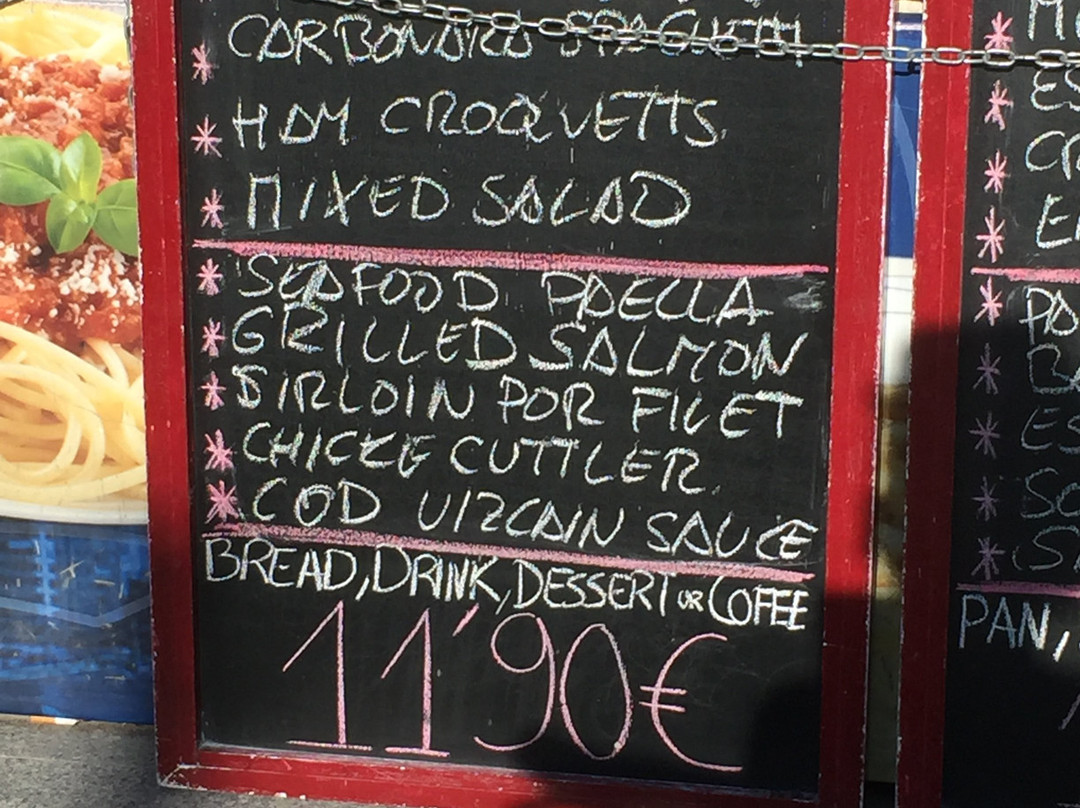 * CARBONARA SPAGHETTI
* HAM CROQUETTS
* MIXED SALAD
* SEAFOOD PAELLA
* GRILLED SALMON
* SIRLOIN POR FILET
* CHICKE CUTTLER
* COD VIZCAIN SAUCE
BREAD, DRINK, DESSERT OR COFEE
11'90€
*
* ES
* CR
*
* PA
* BA
* ES
* SO
*
PAN,